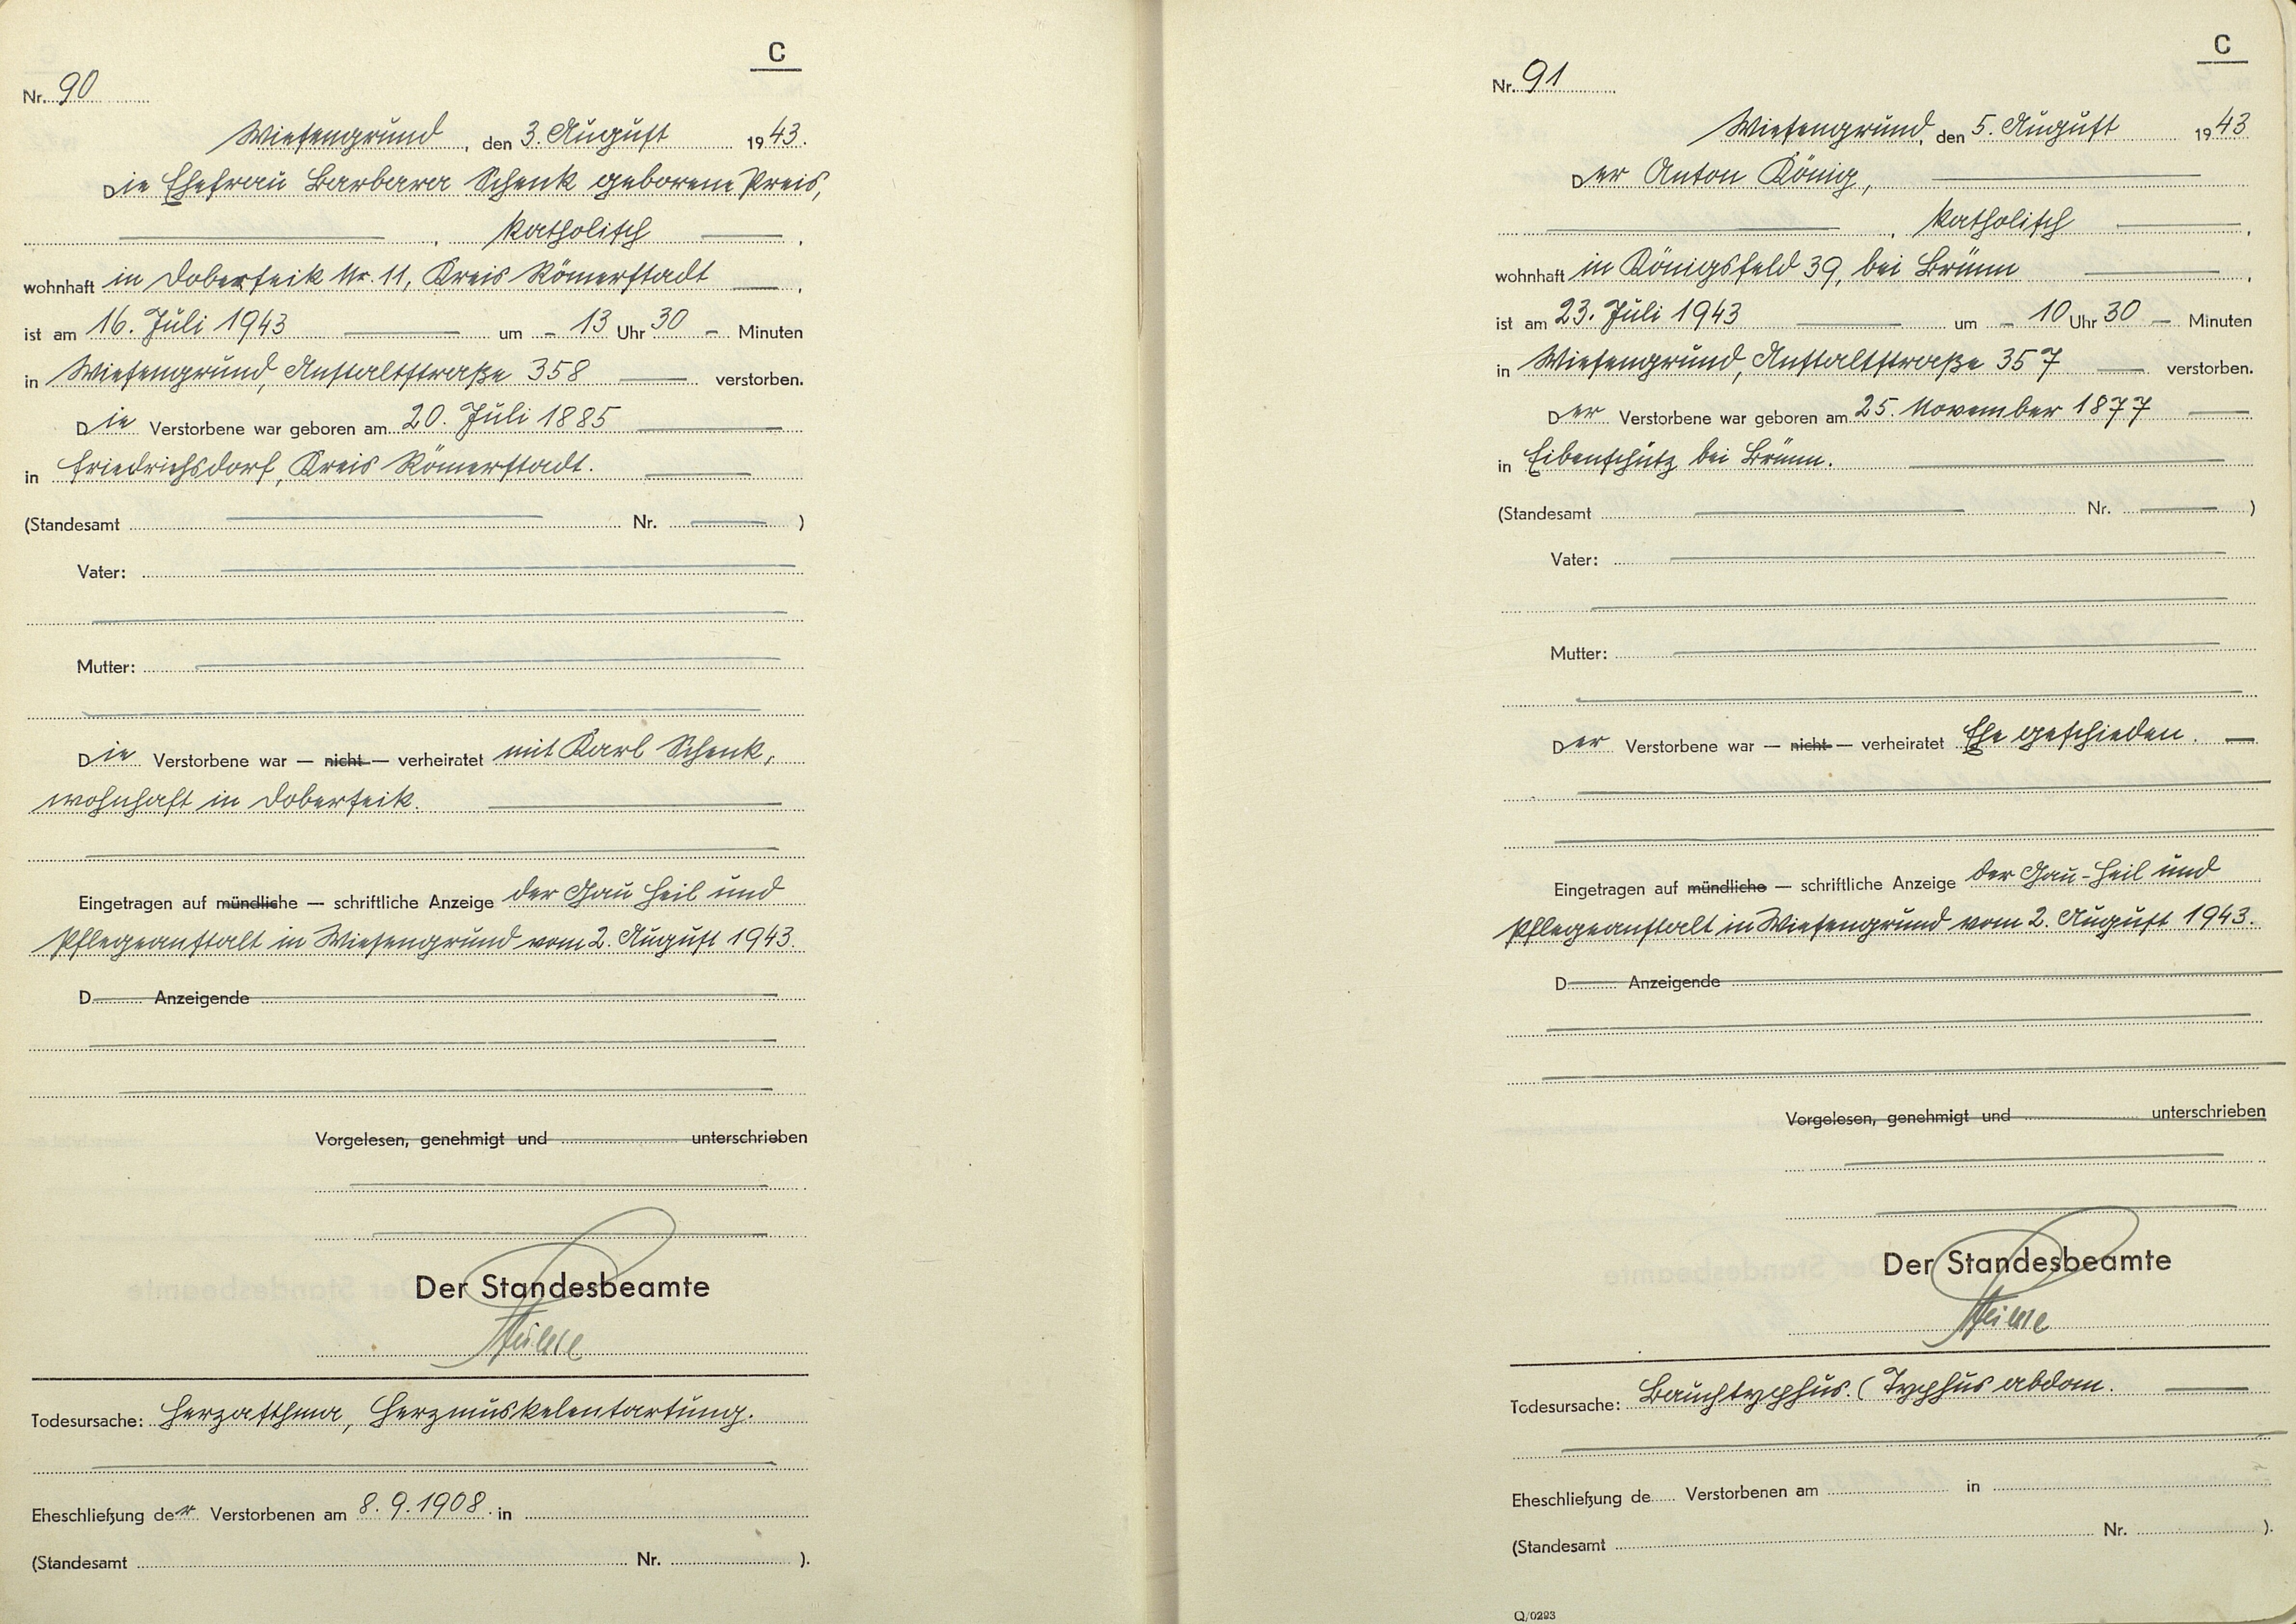 C
Nr. 90
Wiesengrund, den 3. August 1943.
Die Ehefrau Barbara Schenk geborene Preis,
, katholisch ,
wohnhaft in Doberseik Nr. 11, Kreis Römerstadt ,
ist am 16. Juli 1943 um - 13 Uhr 30 - Minuten
in Wiesengrund, Anstaltstraße 358 verstorben.
Die Verstorbene war geboren am 20. Juli 1885
in Friedrichsdorf, Kreis Römerstadt.
(Standesamt Nr. )
Vater:
Mutter:
Die Verstorbene war — nicht — verheiratet mit Karl Schenk,
wohnhaft in Doberseik.
Eingetragen auf mündliche — schriftliche Anzeige der Gau Heil und
Pflegeanstalt in Wiesengrund vom 2. August 1943.
D Anzeigende
Vorgelesen, genehmigt und unterschrieben
Der Standesbeamte
Todesursache: Herzasthma, Herzmuskelentartung.
Eheschließung der Verstorbenen am 8.9.1908. in
(Standesamt Nr. ).
C
Nr. 91
Wiesengrund, den 5. August 1943
Der Anton König,
, katholisch ,
wohnhaft in Königsfeld 39, bei Brünn ,
ist am 23. Juli 1943 um - 10 Uhr 30 - Minuten
in Wiesengrund, Anstaltstraße 357 verstorben.
Der Verstorbene war geboren am 25. November 1877
in Eibenschütz bei Brünn.
(Standesamt Nr. )
Vater:
Mutter:
Der Verstorbene war — nicht — verheiratet Ehe geschieden.
Eingetragen auf mündliche — schriftliche Anzeige der Gau-Heil und
Pflegeanstalt in Wiesengrund vom 2. August 1943.
D Anzeigende
Vorgelesen, genehmigt und unterschrieben
Der Standesbeamte
Todesursache: Bauchtyphus. (Typhus abdom.
Eheschließung de Verstorbenen am in
(Standesamt Nr. ).
Q/0293